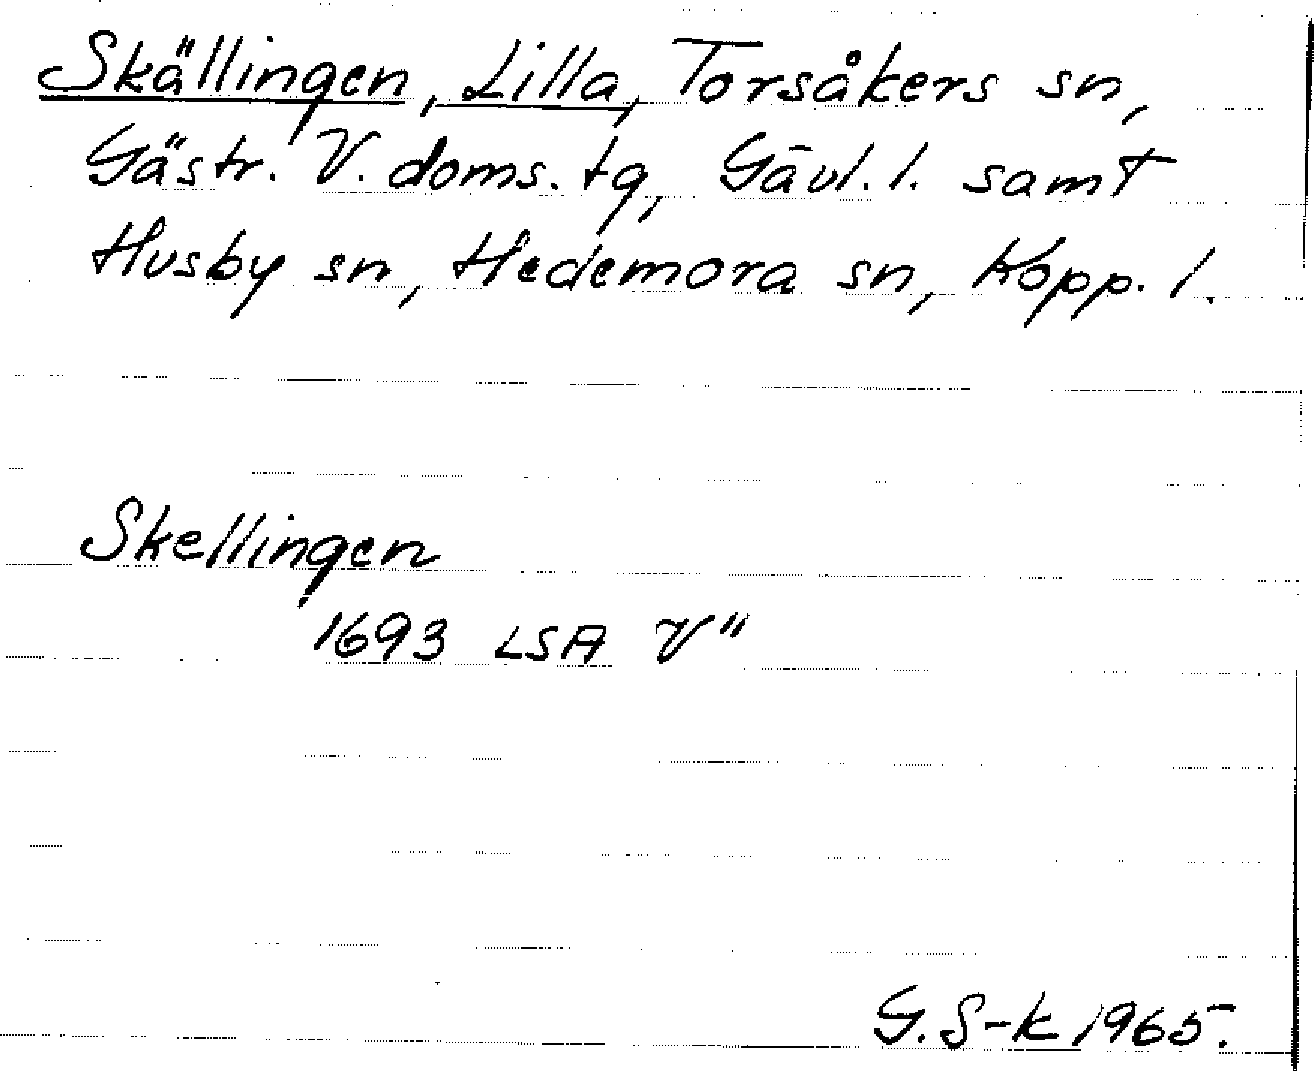 Skällingen, Lilla, Torsåkers sn,
Gästr. V. doms. tg, Gävl. l. samt
Husby sn, Hedemora sn, Kopp. l.
Skellingen
1693 LSA V"
G. S-k 1965.